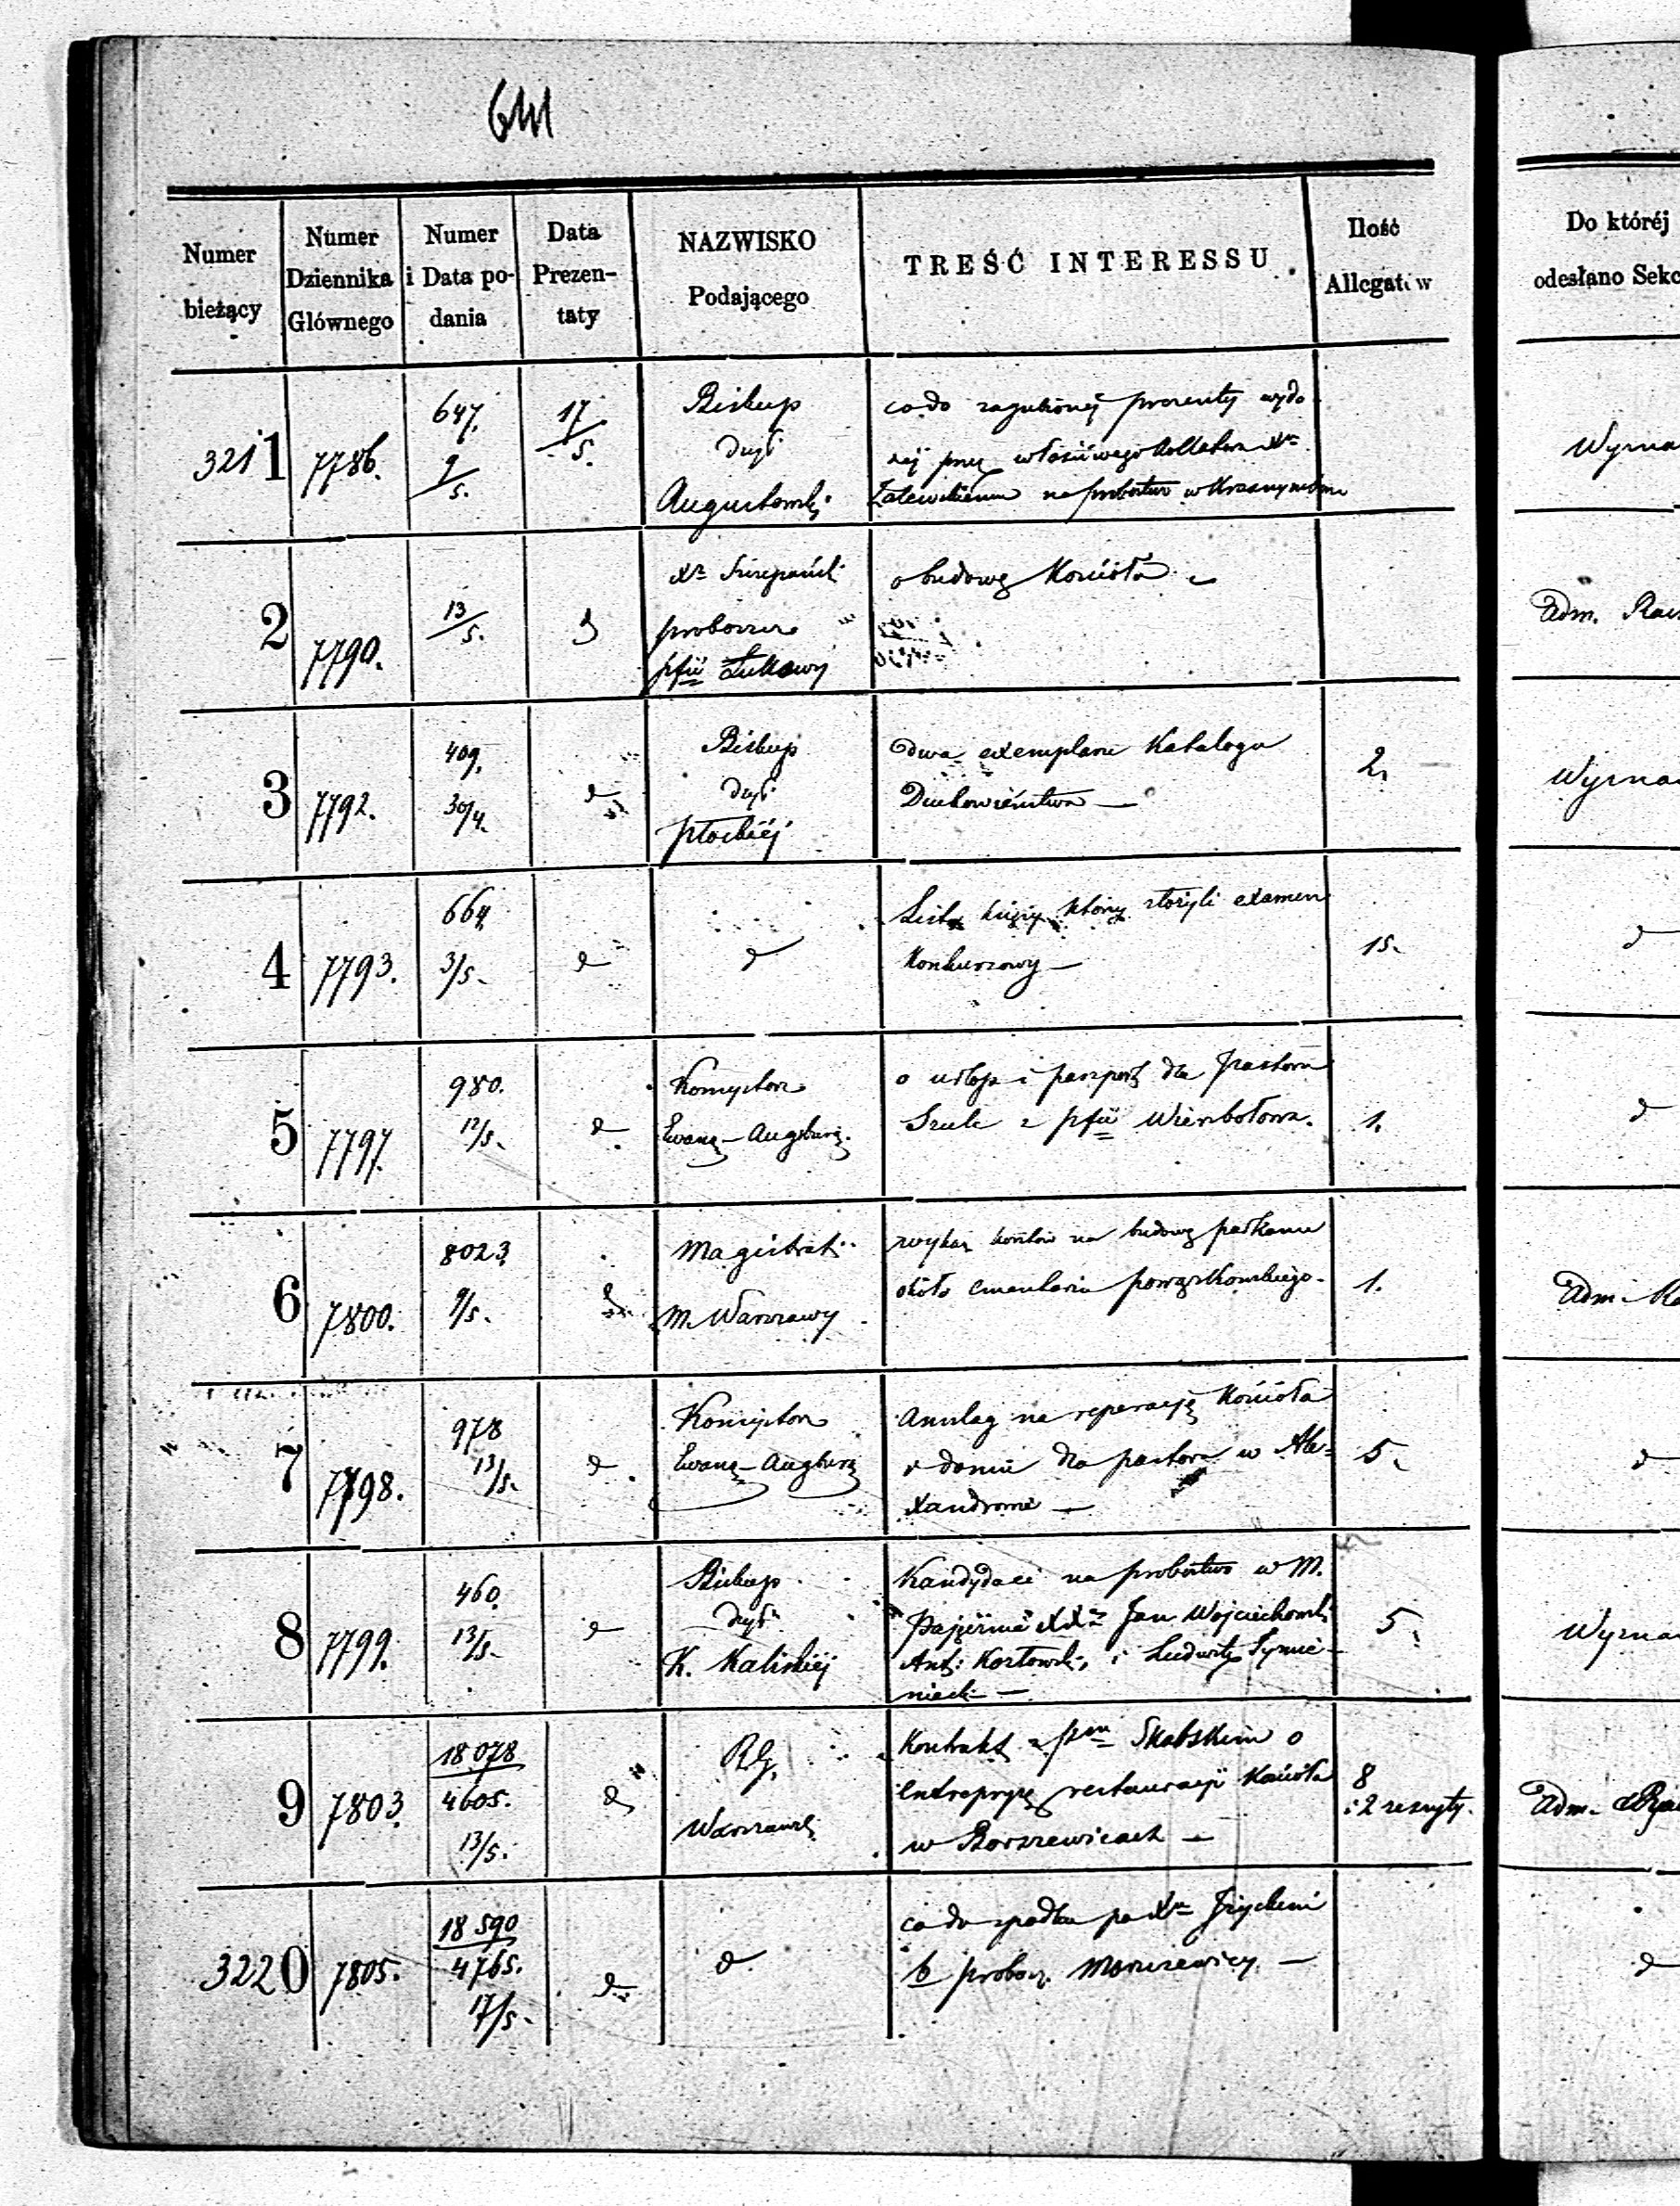 Numer bieżący
Numer Dziennika Głównego
Numer i Data podania
Data Prezentaty
NAZWISKO Podającego
TREŚĆ INTERESSU
Ilość Allegatów
Do któréj
odesłano Sekc
3211 7786. 647. 9/5. 17/5.
Biskup
dyć
Augustowski
co do zagubionéj prezenty wyda
néj przez właściwego Kollatora Xu
Zalewskiemu na probostwo w
Wyzna
2 7790. 13/5.
Xz Szczepański
proboszcz
pfii Łukowy
o budowę Kościoła
Adm.
3 7792. 409. 30/4.
Biskup
dyć
płockiéj
dwa exemplarze Katalogu
Duchowieństwa —
2.
Wyzna
4 7793. 664. 3/5.
d
Lista księży którzy złożyli examen
Konkursowy —
15.
d
5 7797. 980. 12/5.
Konsystorz
Ewang-Augsburg.
o urlop i paszport dla Pastora
Szulc z pfii Wierzbołowa.
1.
d
6 7800. 8023 9/5.
Magistrat
M. Warszawy
wykaz kosztów na budowę parkanu
około cmentarza powązkowskiego.
1.
Adm.
7 7798. 978 13/5.
Konsystorz
Ewang-Augsburg
Anszlag na reperacyę Kościoła
i domu dla pastora w Ale-
xandrowie —
5.
d
8 7799. 460. 13/5.
Biskup
dyć
K. Kaliskiéj
Kandydaci na probostwo w M.
Pajęcznie XXz Jan Wojciechowski
Ant: Kozłowski, i Ludwik Tymie-
niecki —
5.
Wyzna
9 7803. 18078 4605. 13/5.
RG.
Warszawski
Kontrakt z pm Skabskim o
entrepryzę restauracyi Kościoła
w Borszewicach —
8
i 2 zeszyty.
Adm.
3220 7805. 18590 4765. 17/5.
d
co do spadku po Xu
b probosz.
d